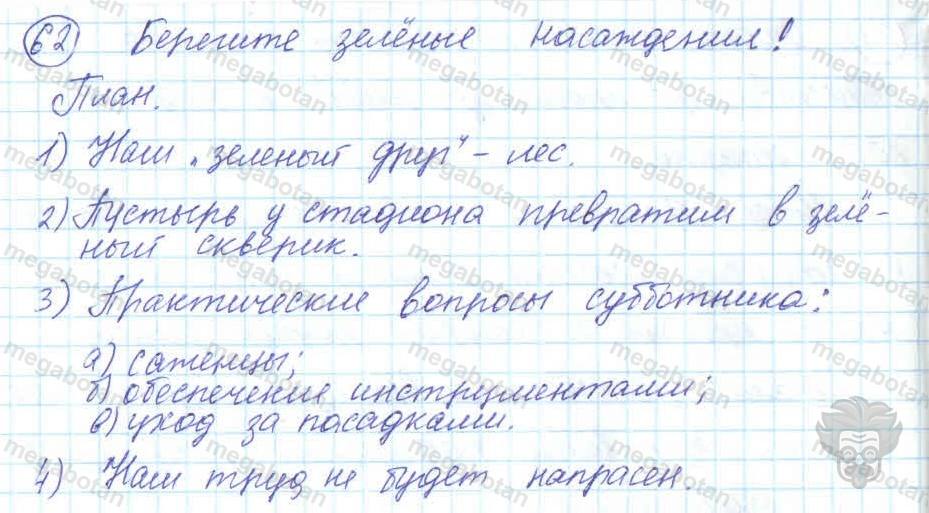 62 Берегите зелёные насаждения!
План.
1) Наш „зеленый друг" - лес.
2) Пустырь у стадиона превратим в зелё-
ный скверик.
3) Практические вопросы субботника:
а) саженцы;
б) обеспечение инструментами;
в) уход за посадками.
4) Наш труд не будет напрасен.
megabotan